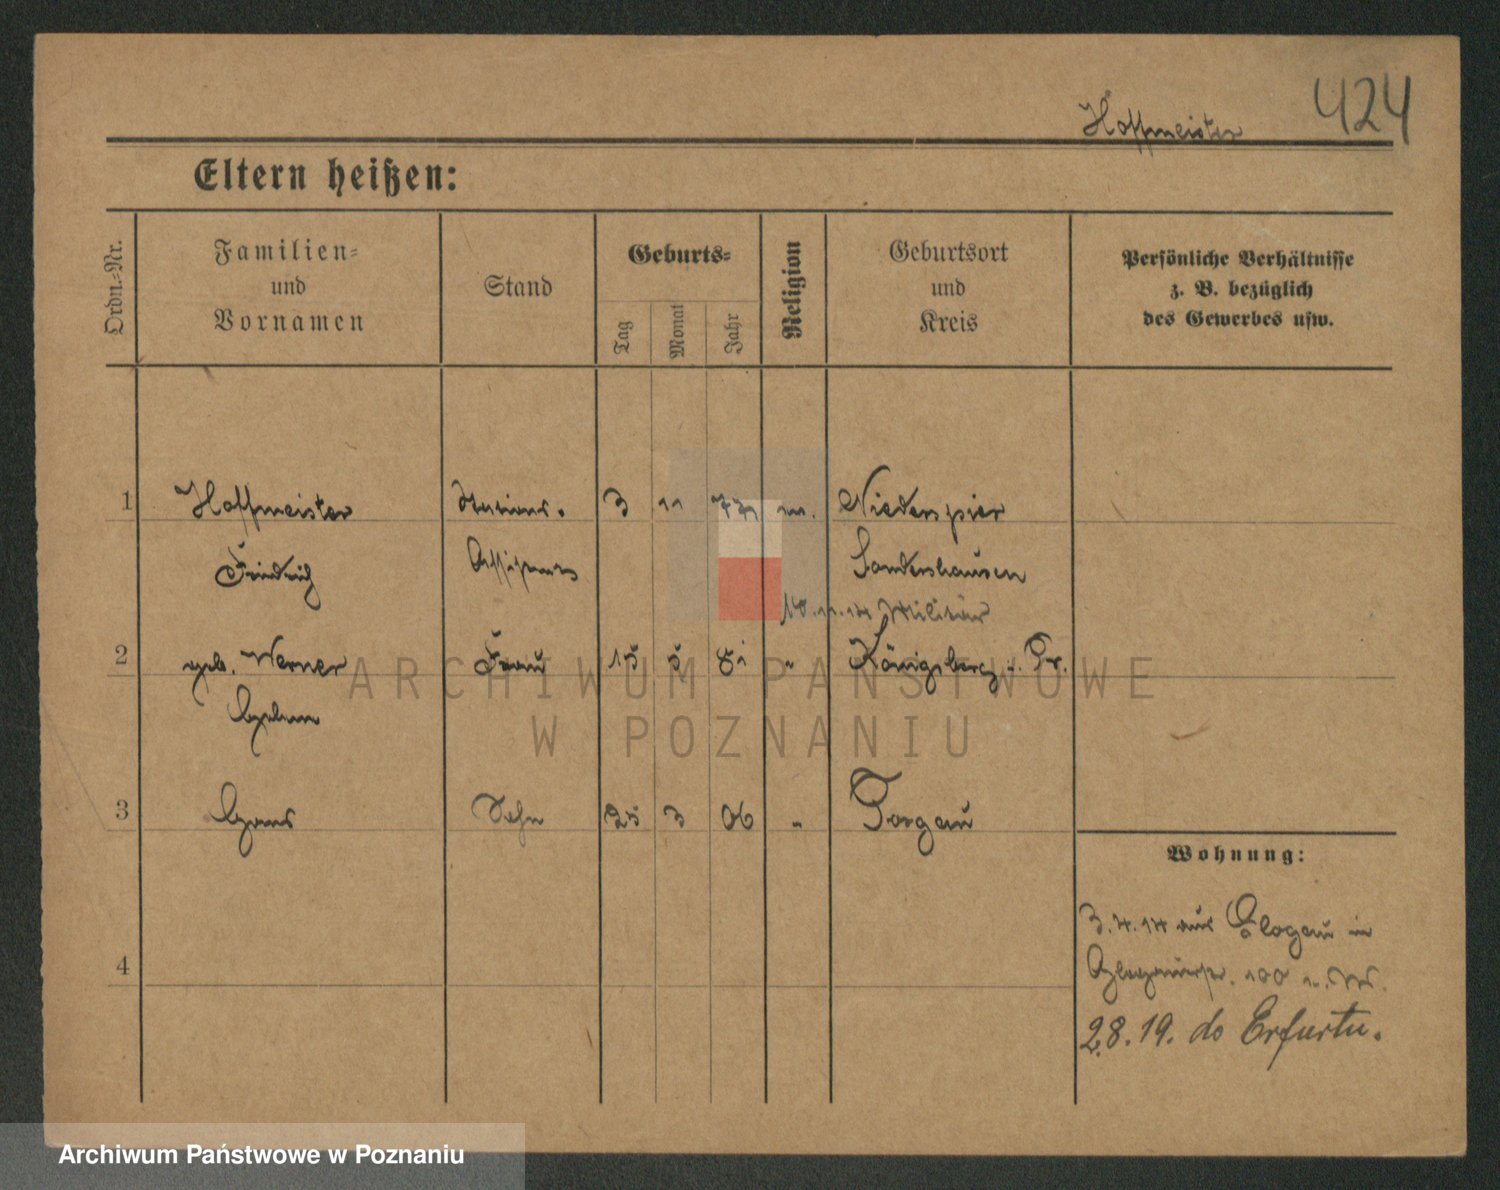 424
Hoffmeister
Eltern heißen:
Ordn.-Nr.
Familien-
und
Vornamen
Stand
Geburts-
Tag
Monat
Jahr
Religion
Geburtsort
und
Kreis
Persönliche Verhältnisse
z. B. bezüglich
des Gewerbes usw.
1 Hoffmeister 3 11 Niederspier
Friedrich Assistent Sondershausen
Militär
2 geb. Werner Frau 15 5 81 " Königsberg i. Pr.
3 Hans Sohn 25 3 06 " Torgau
4
Wohnung:
3.4.14 aus Glogau in
100
2.8.19. do Erfurtu.
ARCHIWUM PAŃSTWOWE
W POZNANIU
Archiwum Państwowe w Poznaniu